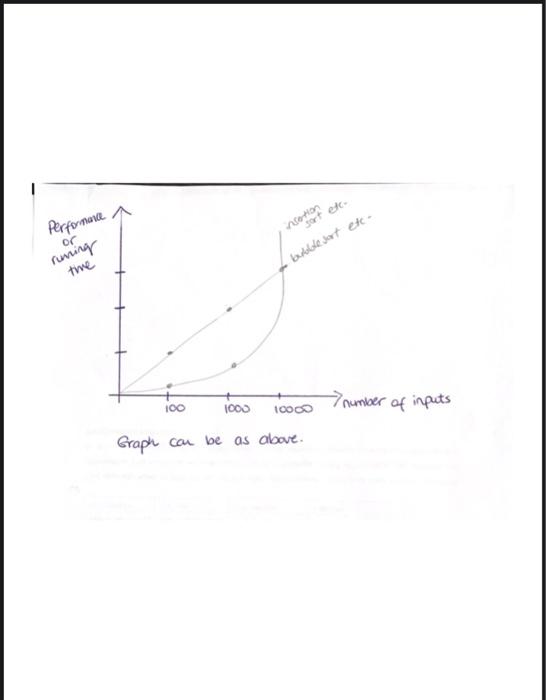 Performance
or
running
time
insertion
sort etc.
bubble sort etc.
100
1000
10000
number of inputs
Graph can be as above.